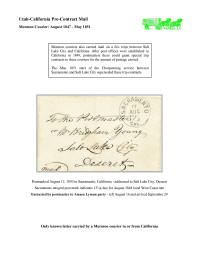 Utah-California Pre-Contract Mail
Mormon Courier: August 1847 - May 1851
Mormon couriers also carried mail on a few trips between Salt
Lake City and California. After post offices were established in
California in 1849, postmasters there could grant special trip
contracts to these couriers for the amount of postage carried.
The May 1851 start of the Chorpenning service between
Sacramento and Salt Lake City superseded these trip contracts.
To the Postmaster
or Brigham Young
Salt Lake City
Deseret
Postmarked August 13, 1850 in Sacramento, California - addressed to Salt Lake City, Deseret
Sacramento integral postmark indicates 12½¢ due for August 1849 local West Coast rate
Entrusted by postmaster to Amasa Lyman party - left August 14 and arrived September 29
Only known letter carried by a Mormon courier to or from California